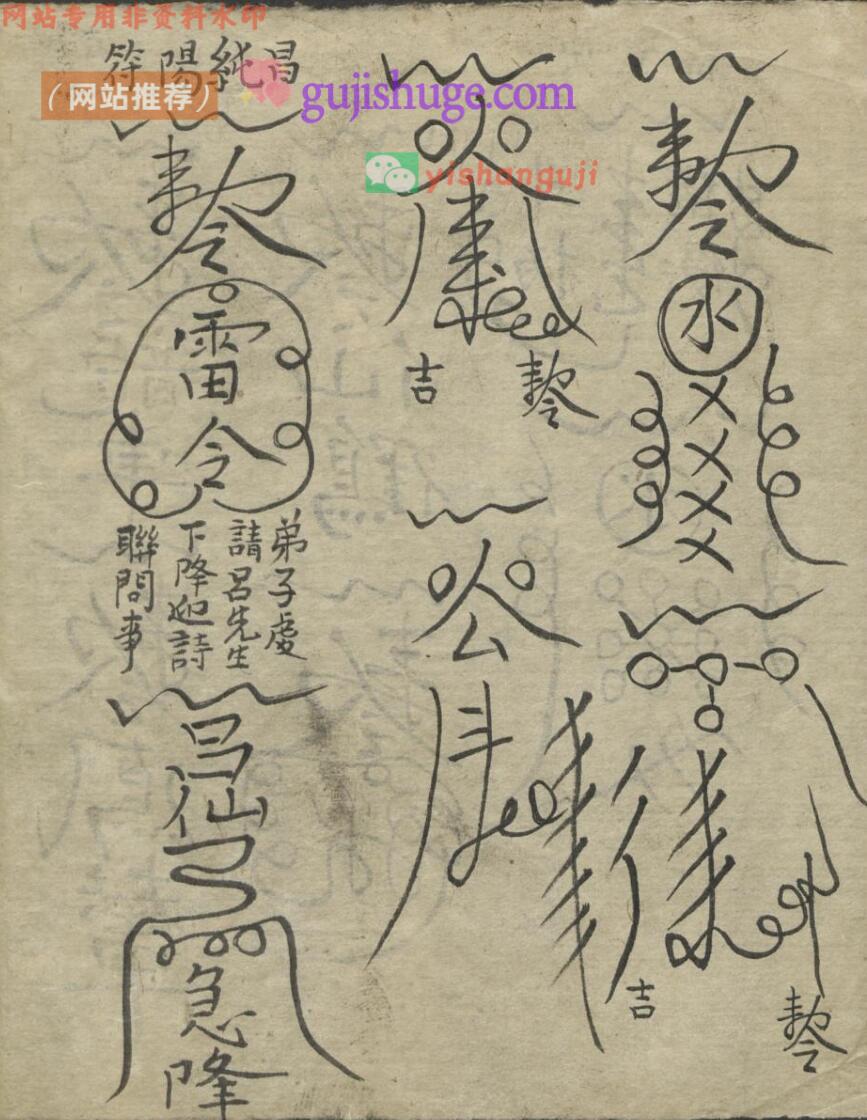 网站专用非资料水印
（网站推荐）
gujishuge.com
yishanguji
敕令
水
敕令
吉
敕令
吉
呂純陽符
敕令
雷令
弟子虔
請呂先生
下降詩
聯問事
呂仙
急降